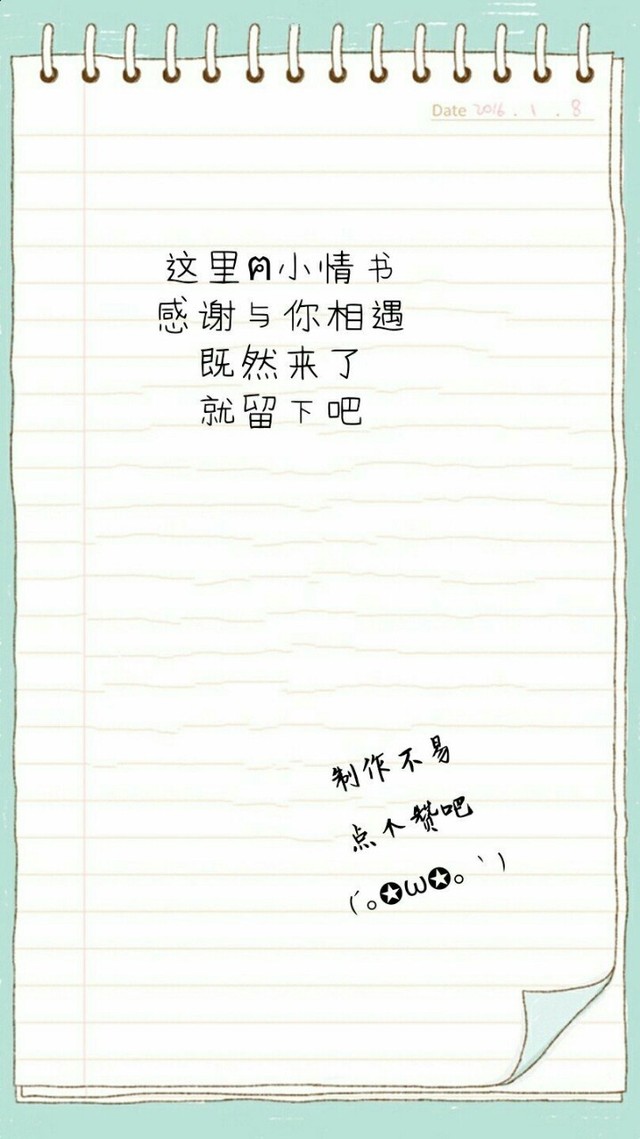 Date 2016.1.8
这里ฅ小情书
感谢与你相遇
既然来了
就留下吧
制作不易
点个赞吧
(´｡✪ω✪｡｀)